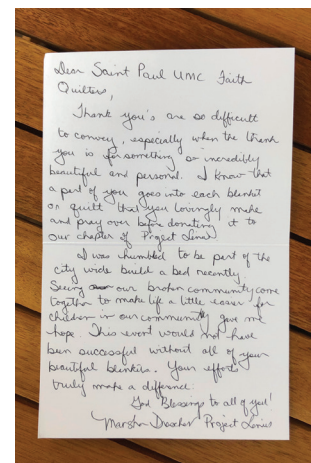 Dear Saint Paul UMC Faith
Quilters,
Thank you's are so difficult
to convey, especially when the thank
you is for something so incredibly
beautiful and personal. I know that
a part of you goes into each blanket
or quilt that you lovingly make
and pray over before donating it to
our chapter of Project Linus.
I was humbled to be part of the
city wide build a bed recently.
Seeing our broken community come
together to make life a little easier for
children in our community gave me
hope. This event would not have
been successful without all of your
beautiful blankets. Your efforts
truly make a difference.
God Blessings to all of you!
Marsha Project Linus